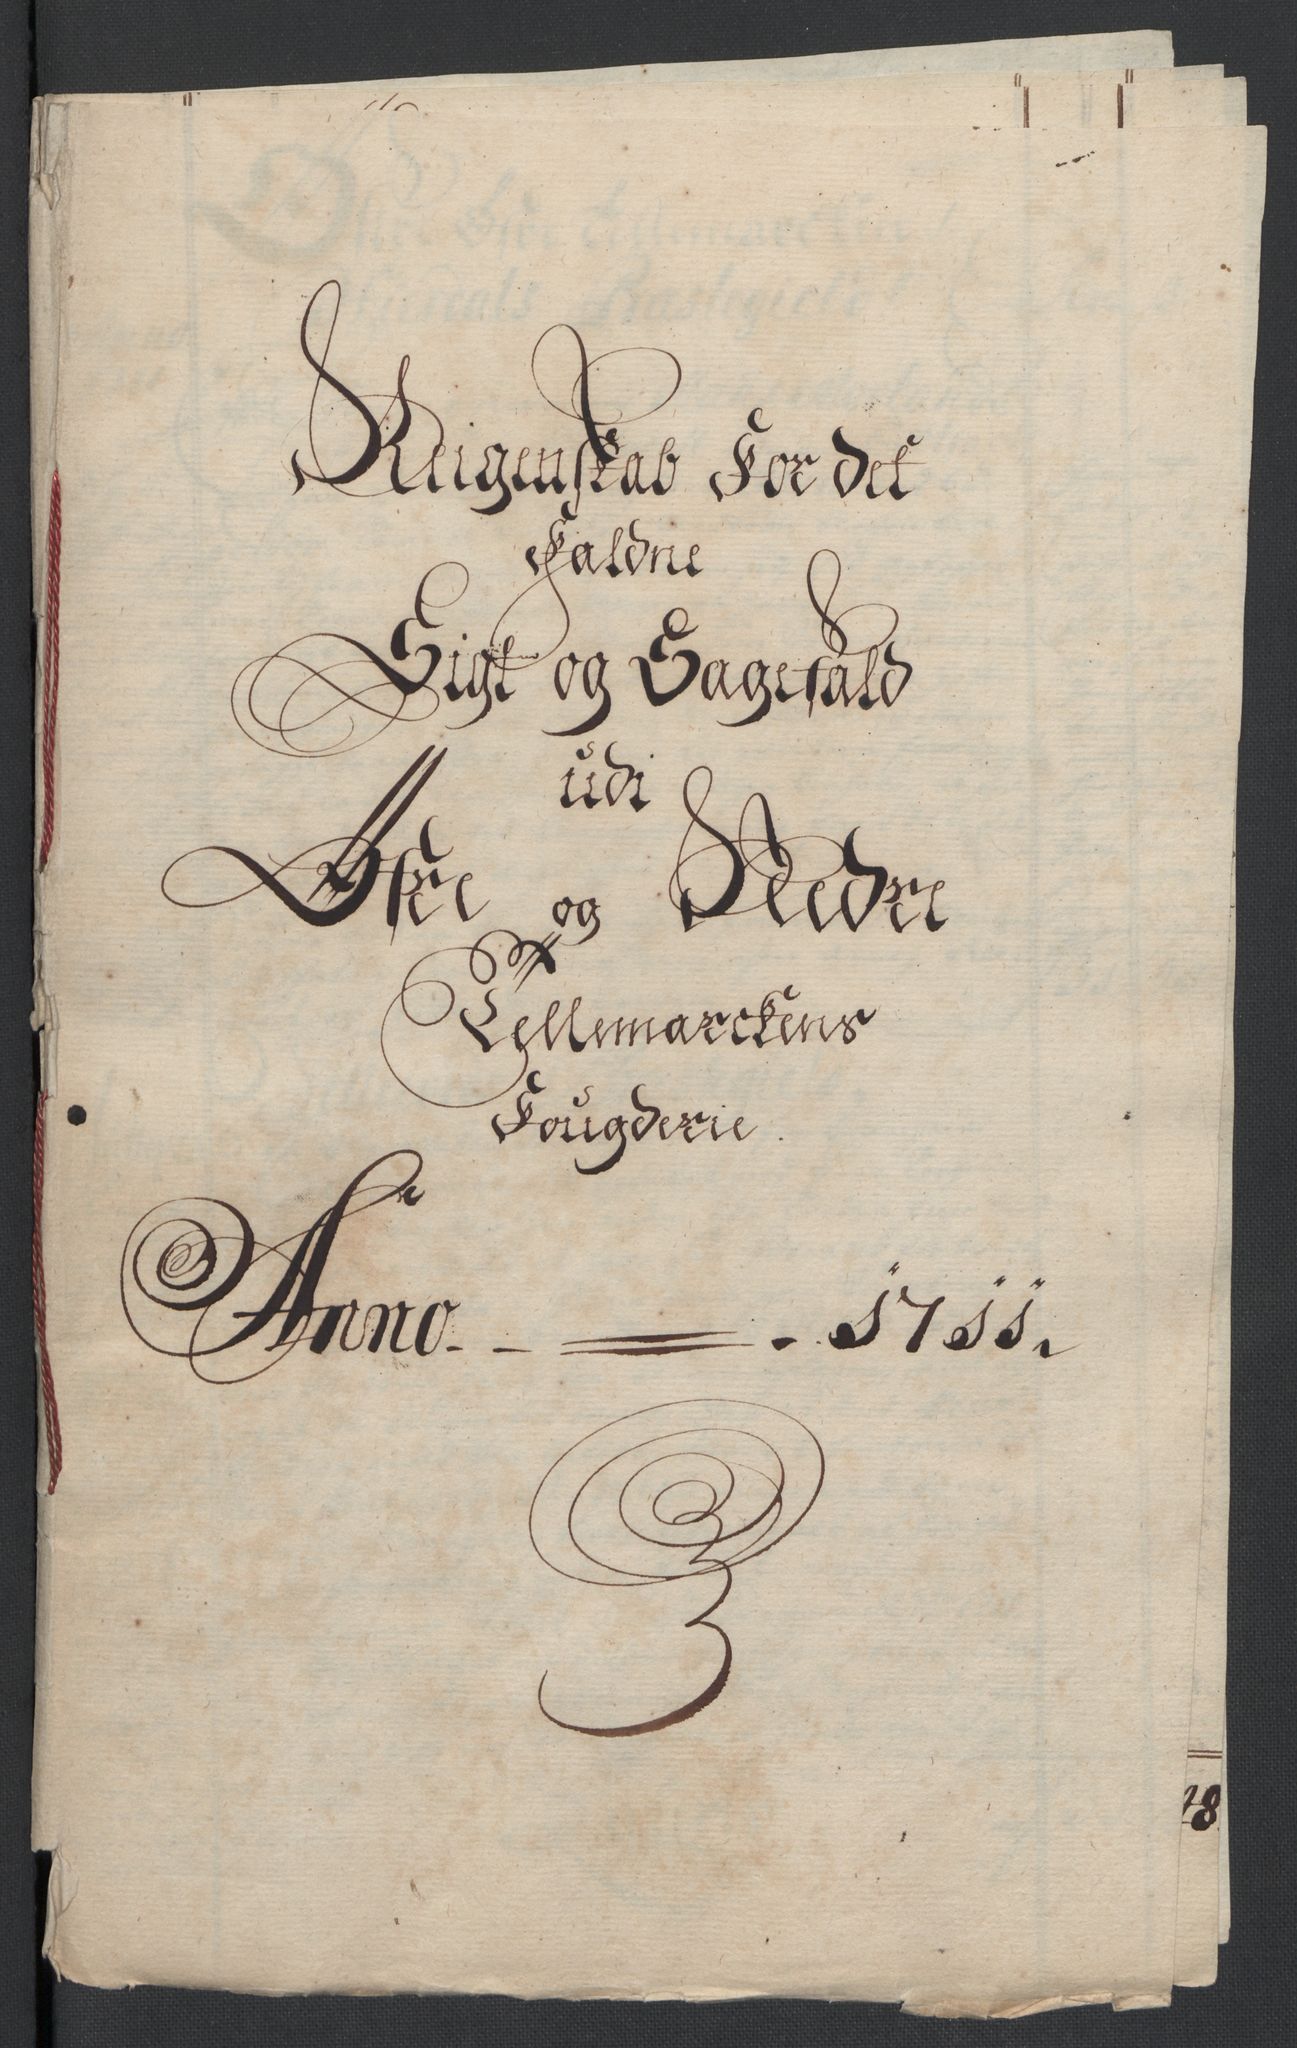 Reigenskab For det
Faldne
Sigt og Sagefald
udi
Øfre og Nedre
Tellemarckens
Fougderie.
Anno - - = - 1711.
18